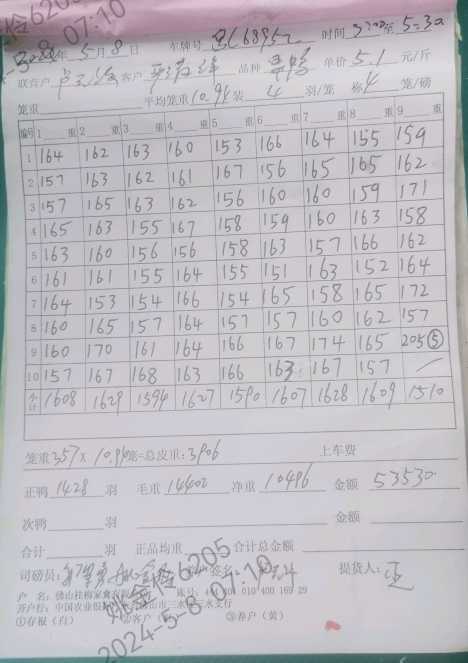 年 5 月 8 日 车牌号 时间 至 5:30
联营户 客户 品种 单价 5.1 元/斤
笼重 平均笼重 10.94 装 4 羽/笼 称 4 笼/磅
编号 1 重 2 重 3 重 4 重 5 重 6 重 7 重 8 重 9 重
1 164 162 163 160 153 166 164 155 159
2 157 163 162 161 167 156 165 165 162
3 157 165 163 162 156 160 160 159 171
4 165 163 155 167 158 159 160 163 158
5 163 160 156 156 158 163 157 166 162
6 161 161 155 164 155 151 163 152 164
7 164 153 154 166 154 165 158 165 172
8 160 165 157 164 157 157 160 162 157
9 160 170 161 164 166 167 174 165 205⑤
10 157 167 168 163 166 163 167 157
小计 1608 1629 1594 1627 1590 1607 1628 1609 1510
笼重 357 × 10.94 笼=总皮重: 3906 上车费
正鸭 1428 羽 毛重 14402 净重 10496 金额 53530
次鸭 羽 金额
合计 羽 正品均重 合计总金额
司磅员: 提货人:
户 名: 佛山桂柳家禽有限
开户行: 中国农业银行 三水支行
①存根(白) ②客户 ③养户(黄)
6205
2024-5-8 07:10